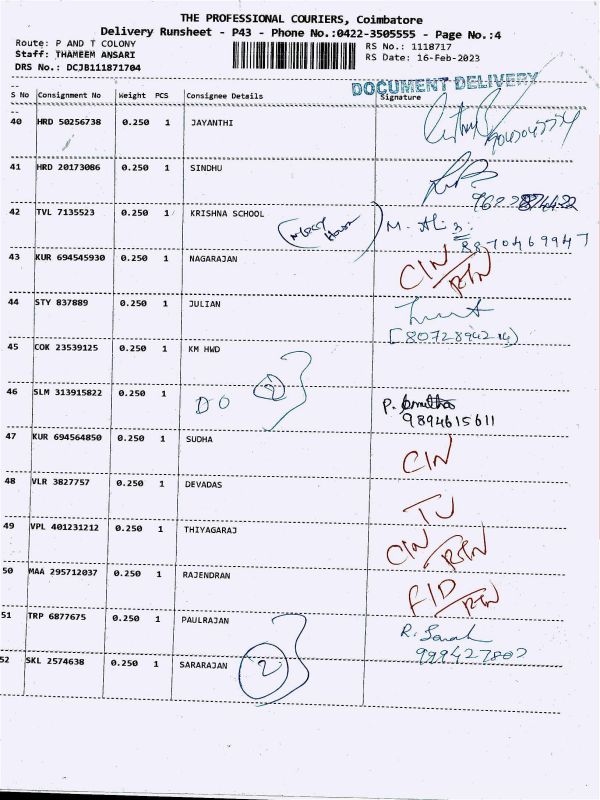 THE PROFESSIONAL COURIERS, Coimbatore
Delivery Runsheet - P43 - Phone No.:0422-3505555 - Page No.:4
Route: P AND T COLONY RS No.: 1118717
Staff: THAMEEM ANSARI RS Date: 16-Feb-2023
DRS No.: DCJB111871704
DOCUMENT DELIVERY
S No Consignment No Weight PCS Consignee Details Signature
40 HRD 50256738 0.250 1 JAYANTHI
41 HRD 20173086 0.250 1 SINDHU
42 TVL 7135523 0.250 1 KRISHNA SCHOOL
8870469947
43 KUR 694545930 0.250 1 NAGARAJAN CIN/RTN
44 STY 837889 0.250 1 JULIAN
45 COK 23539125 0.250 1 KM HWD
46 SLM 313915822 0.250 1 DO 2 P.
9894615611
47 KUR 694564850 0.250 1 SUDHA CIN
48 VLR 3827757 0.250 1 DEVADAS
49 VPL 401231212 0.250 1 THIYAGARAJ CIN/RTN
50 MAA 295712037 0.250 1 RAJENDRAN
51 TRP 6877675 0.250 1 PAULRAJAN R.
999427802
52 SKL 2574638 0.250 1 SARARAJAN 2